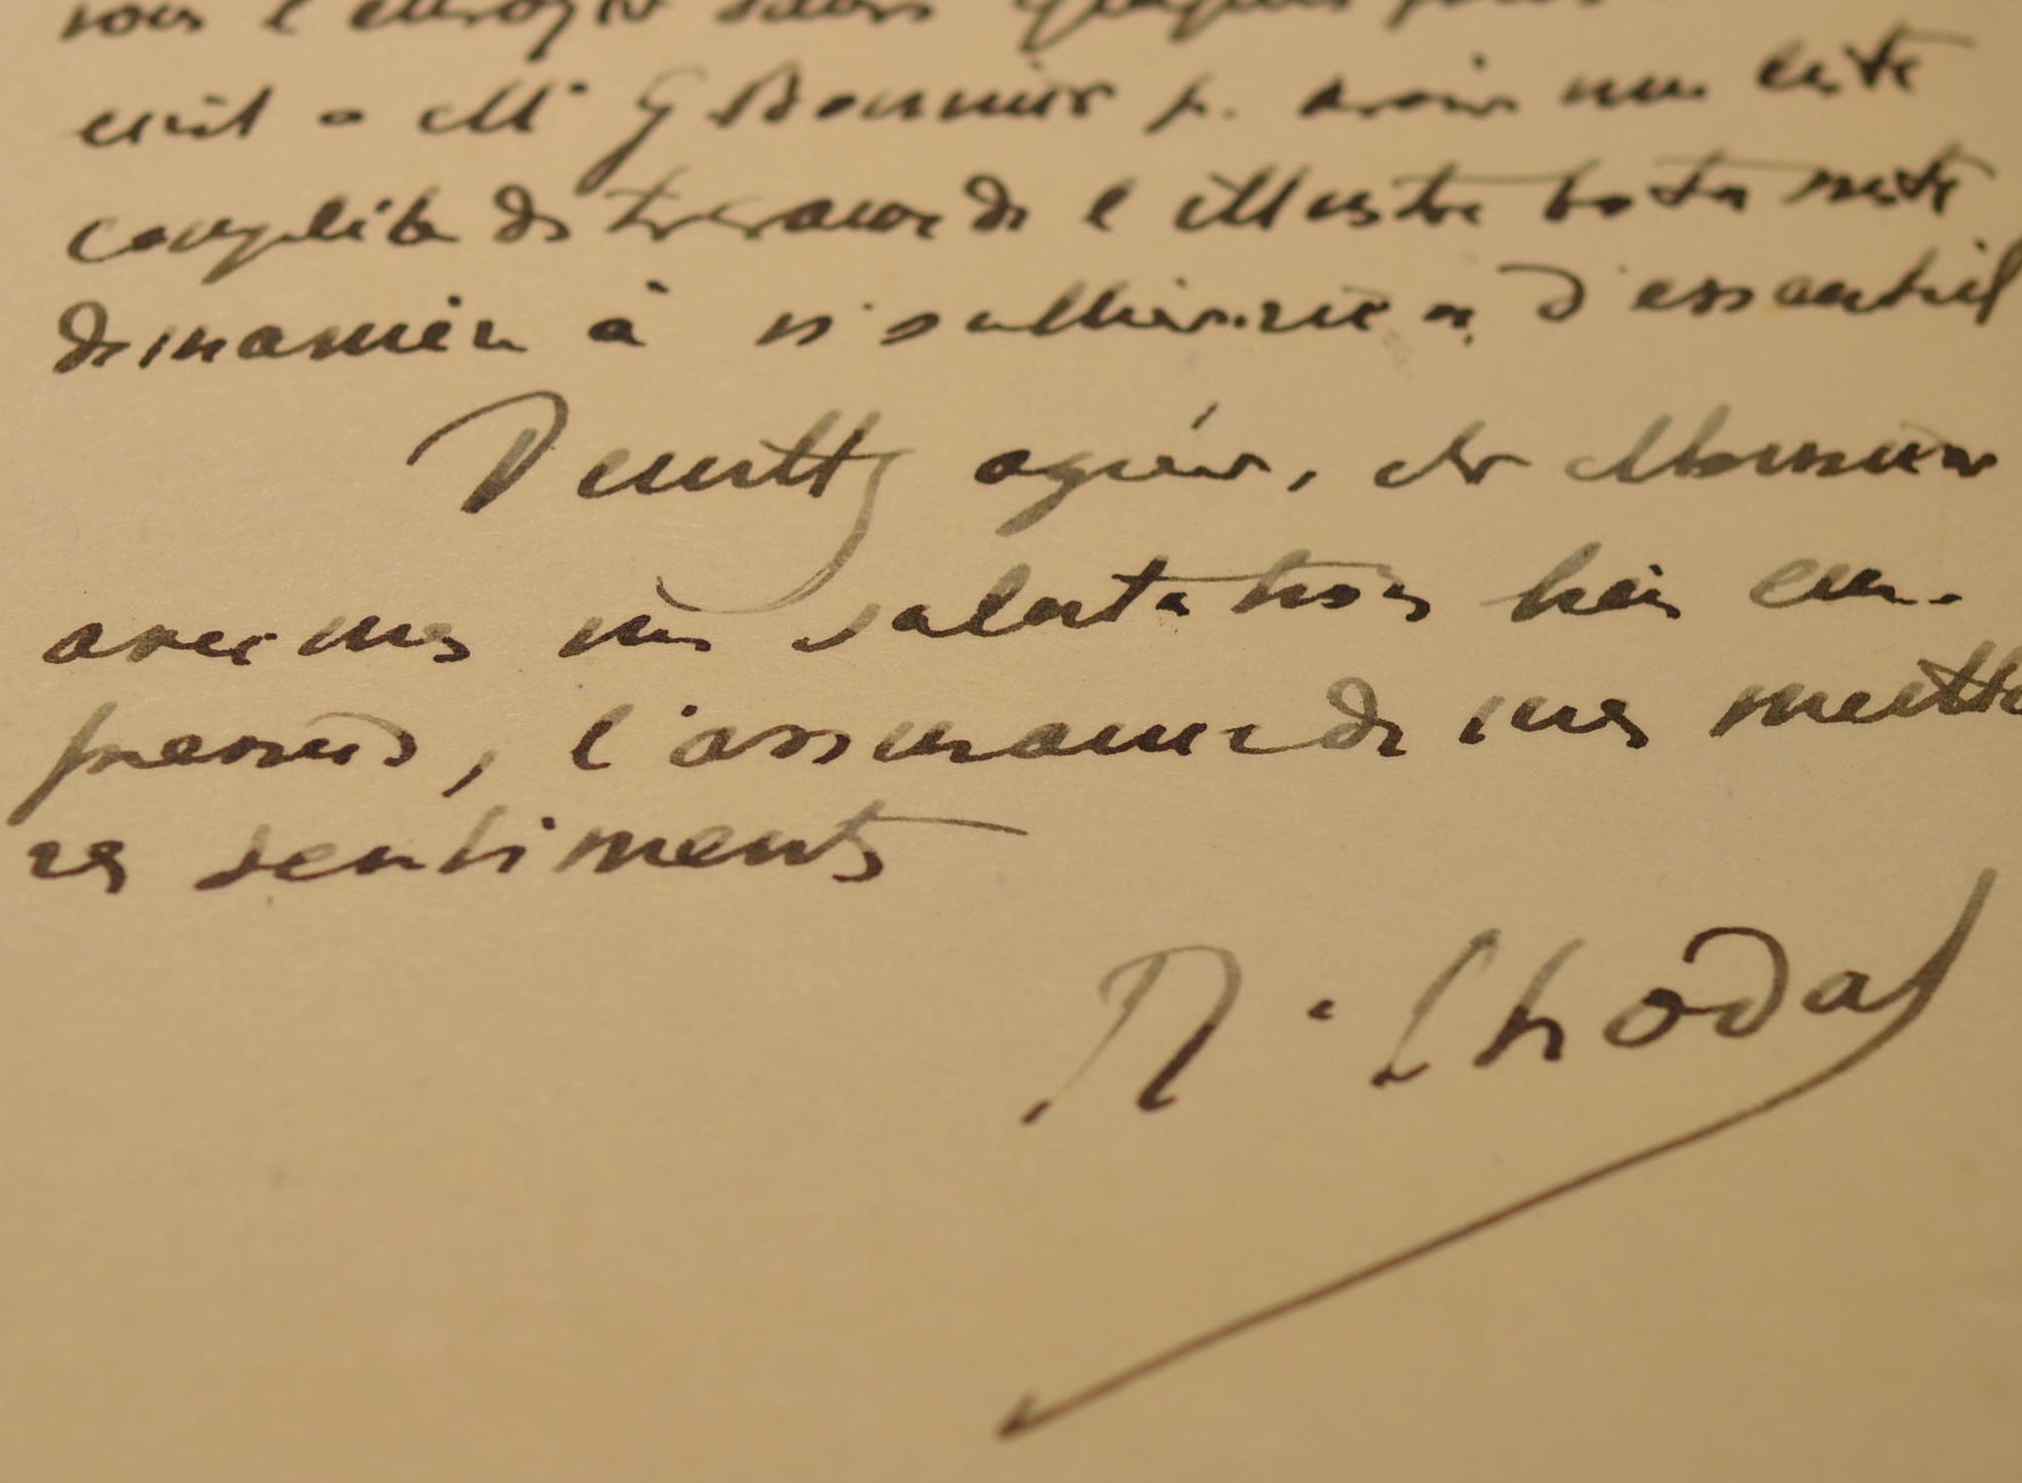 vous l'envoyer dans quelques jours
écrit à Mr G Bonnier p. avoir une liste
complète des travaux de l illustre botaniste
de manière à n'oublier rien d'essentiel
Veuillez agréer, cher Monsieur
avec mes salutations bien em-
pressées, l'assurance de mes meille
res sentiments
R. Chodat